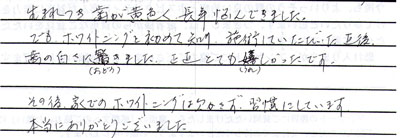 生まれつき歯が黄色く、長年悩んできました。
でも、ホワイトニングを初めて知り、施術していただいた直後、
歯の白さに驚きました。正直とても嬉しかったです。
(おどろ) (うれ)
その後、家でのホワイトニングは欠かさず、習慣にしています
本当にありがとうございました